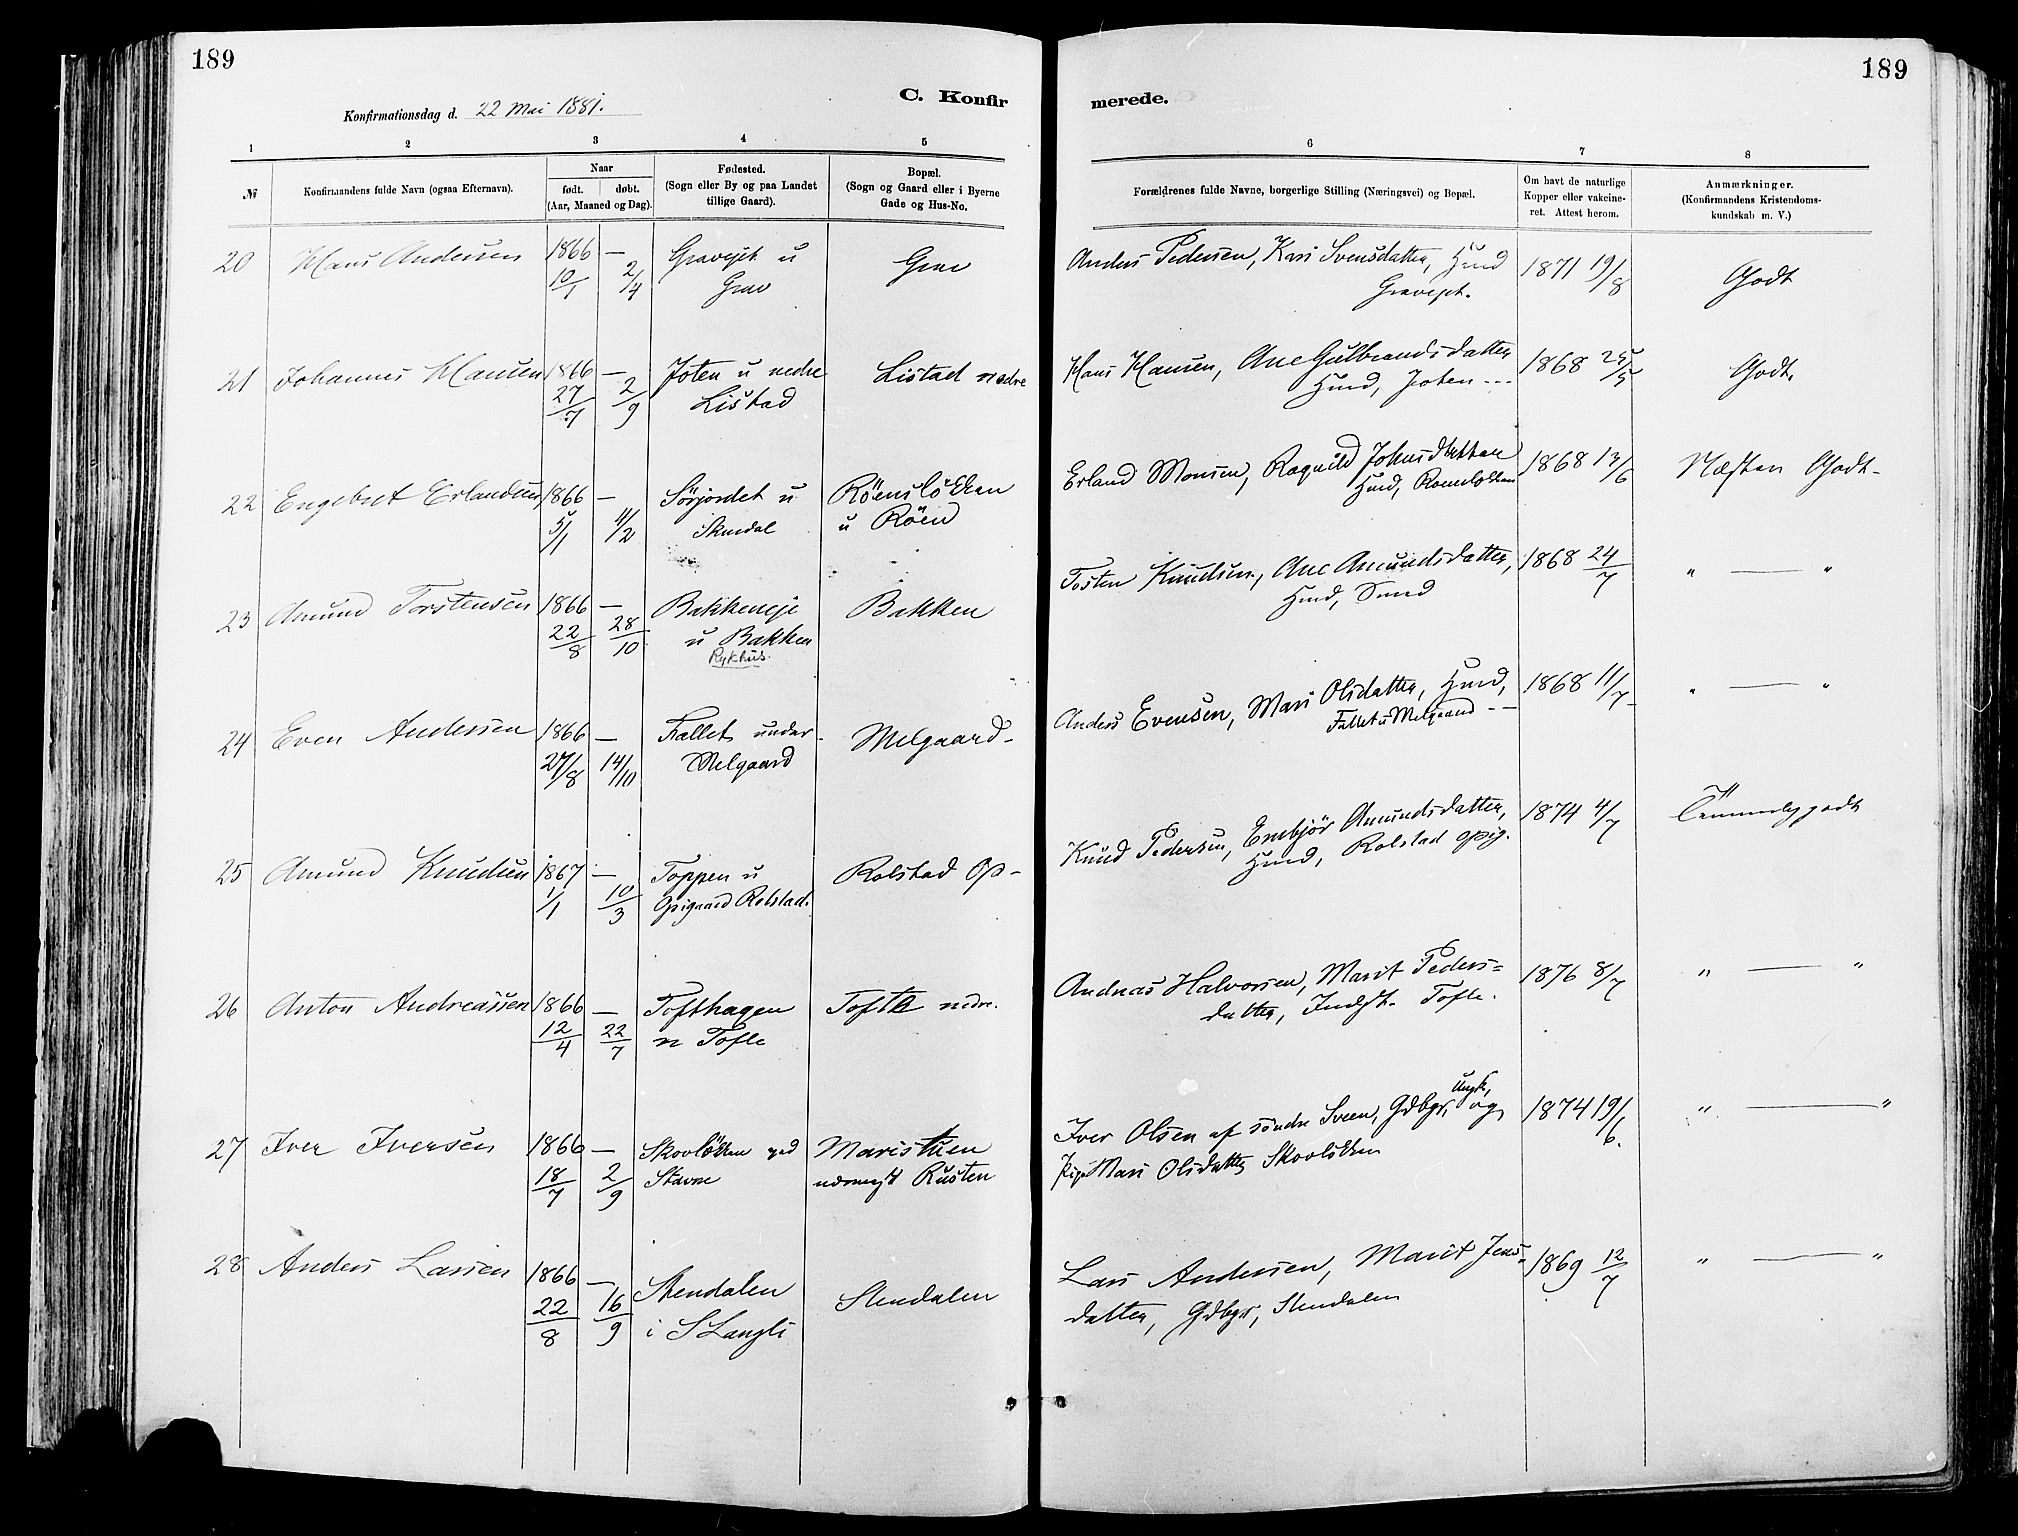 189
189
C. Konfir
merede.
Konfirmationsdag d. 22 Mai 1881.
1 2 3 4 5
6 7 8
№ Konfirmandens fulde Navn (ogsaa Efternavn). Naar født. døbt. (Aar, Maaned og Dag). Fødested. (Sogn eller By og paa Landet tillige Gaard). Bopæl. (Sogn og Gaard eller i Byerne Gade og Hus-No.
Forældrenes fulde Navne, borgerlige Stilling (Næringsvei) og Bopæl. Om havt de naturlige Kopper eller vakcineret. Attest herom. Anmærkninger. (Konfirmandens Kristendomskundskab m. V.)
20 Hans Andersen 1866 — Gravejet u Grav
10/1 2/4 Grav
Anders Pedersen, Kari Svensdatter, Hmd 1871 19/8 Godt
Gravejet.
21 Johannes Hansen 1866 — Joten u nedre Listad nedre
27/7 2/9 Listad
Hans Hansen, Ane Gulbrandsdatter 1868 25/5 Godt.
Hmd, Joten ---
22 Engebret Erlandsen 1866 — Sörjordet u Röenslökken
5/1 11/2 Skurdal u Röen
Erland Monsen, Ragnild Johnsdatter 1868 13/6 Næsten Godt-
Hmd, Roenslökken
23 Amund Torstensen 1866 — Bakkeneje Bakken
22/8 28/10 u Bakken
Rykhus.
Tosten Knudsen, Ane Amundsdatter, 1868 24/7 " — "
Hmd, Sund
24 Even Andersen 1866 — Fallet under Melgaard-
27/8 14/10 Melgaard
Anders Evensen, Mari Olsdatter, Hmd, 1868 11/7 " — "
Fallet u Melgaard --
25 Amund Knudsen 1867 — Toppen u Rolstad Op-
1/1 10/3 Opigaard Rolstad.
Knud Pedersen, Embjör Amundsdatter, 1874 4/7 Temmelig godt
Hmd, Rolstad opig.
26 Anton Andreassen 1866 — Tofthagen Tofte nedre.
12/4 22/7 n Tofte
Andreas Halvorsen, Marit Peders= 1876 8/7 " — "
datter, Indst. Tofte.
27 Iver Iversen 1866 — Skovlökken ved Maristuen
18/7 2/9 Stavne Rusten
Iver Olsen af söndre Sveen, Gdbgr, Ungk, og 1874 19/6. " — "
Pige Mari Olsdatter Skovlökken
28 Anders Larsen 1866 — Stendalen Stendalen
22/8 16/9 i S Langli
Lars Andersen, Marit Jens- 1869 12/7 " — "
datter, Gdbgr, Stendalen